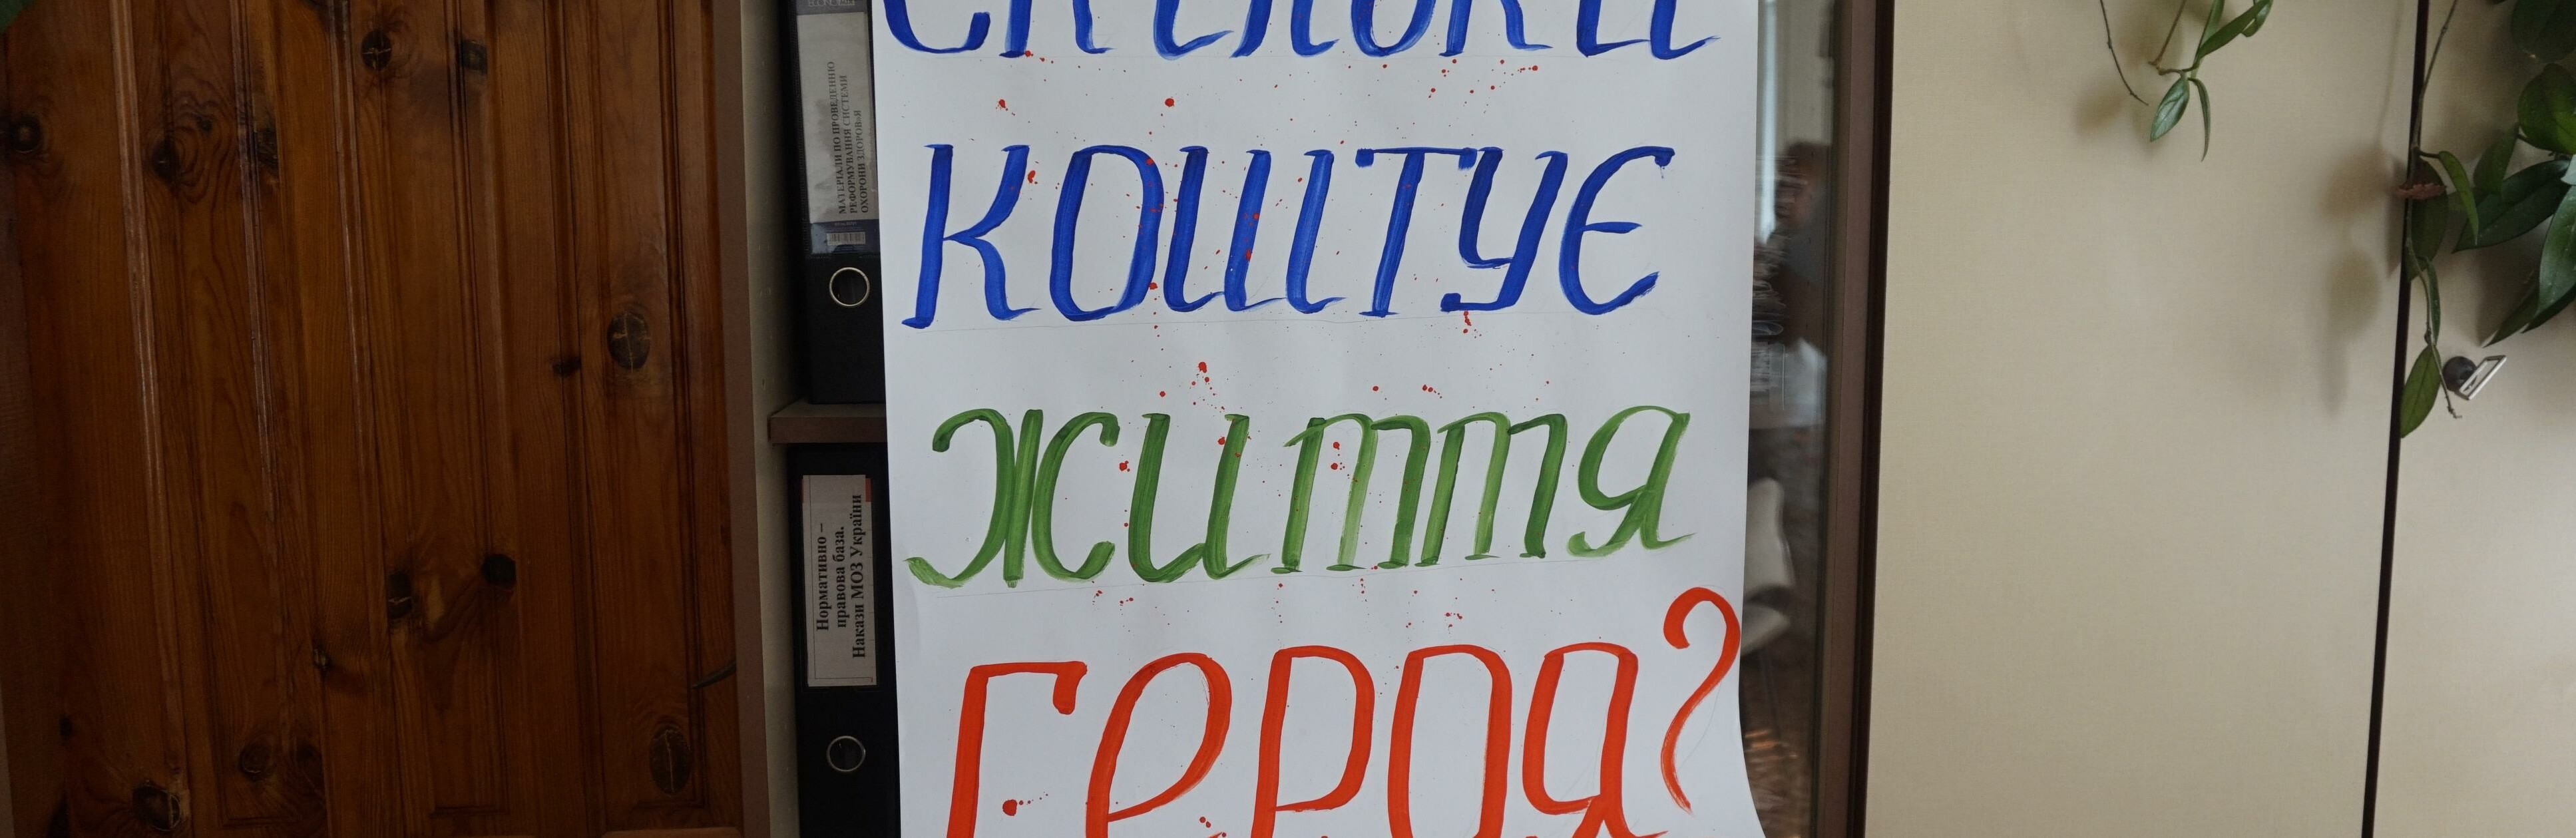 МАТЕРІАЛИ ПО ПРОВЕДЕННЮ
РЕФОРМУВАННЯ СИСТЕМИ
ОХОРОНИ ЗДОРОВ'Я
КОШТУЄ
ЖИТТЯ
ГЕРОЯ?
Нормативно –
правова база.
Накази МОЗ України